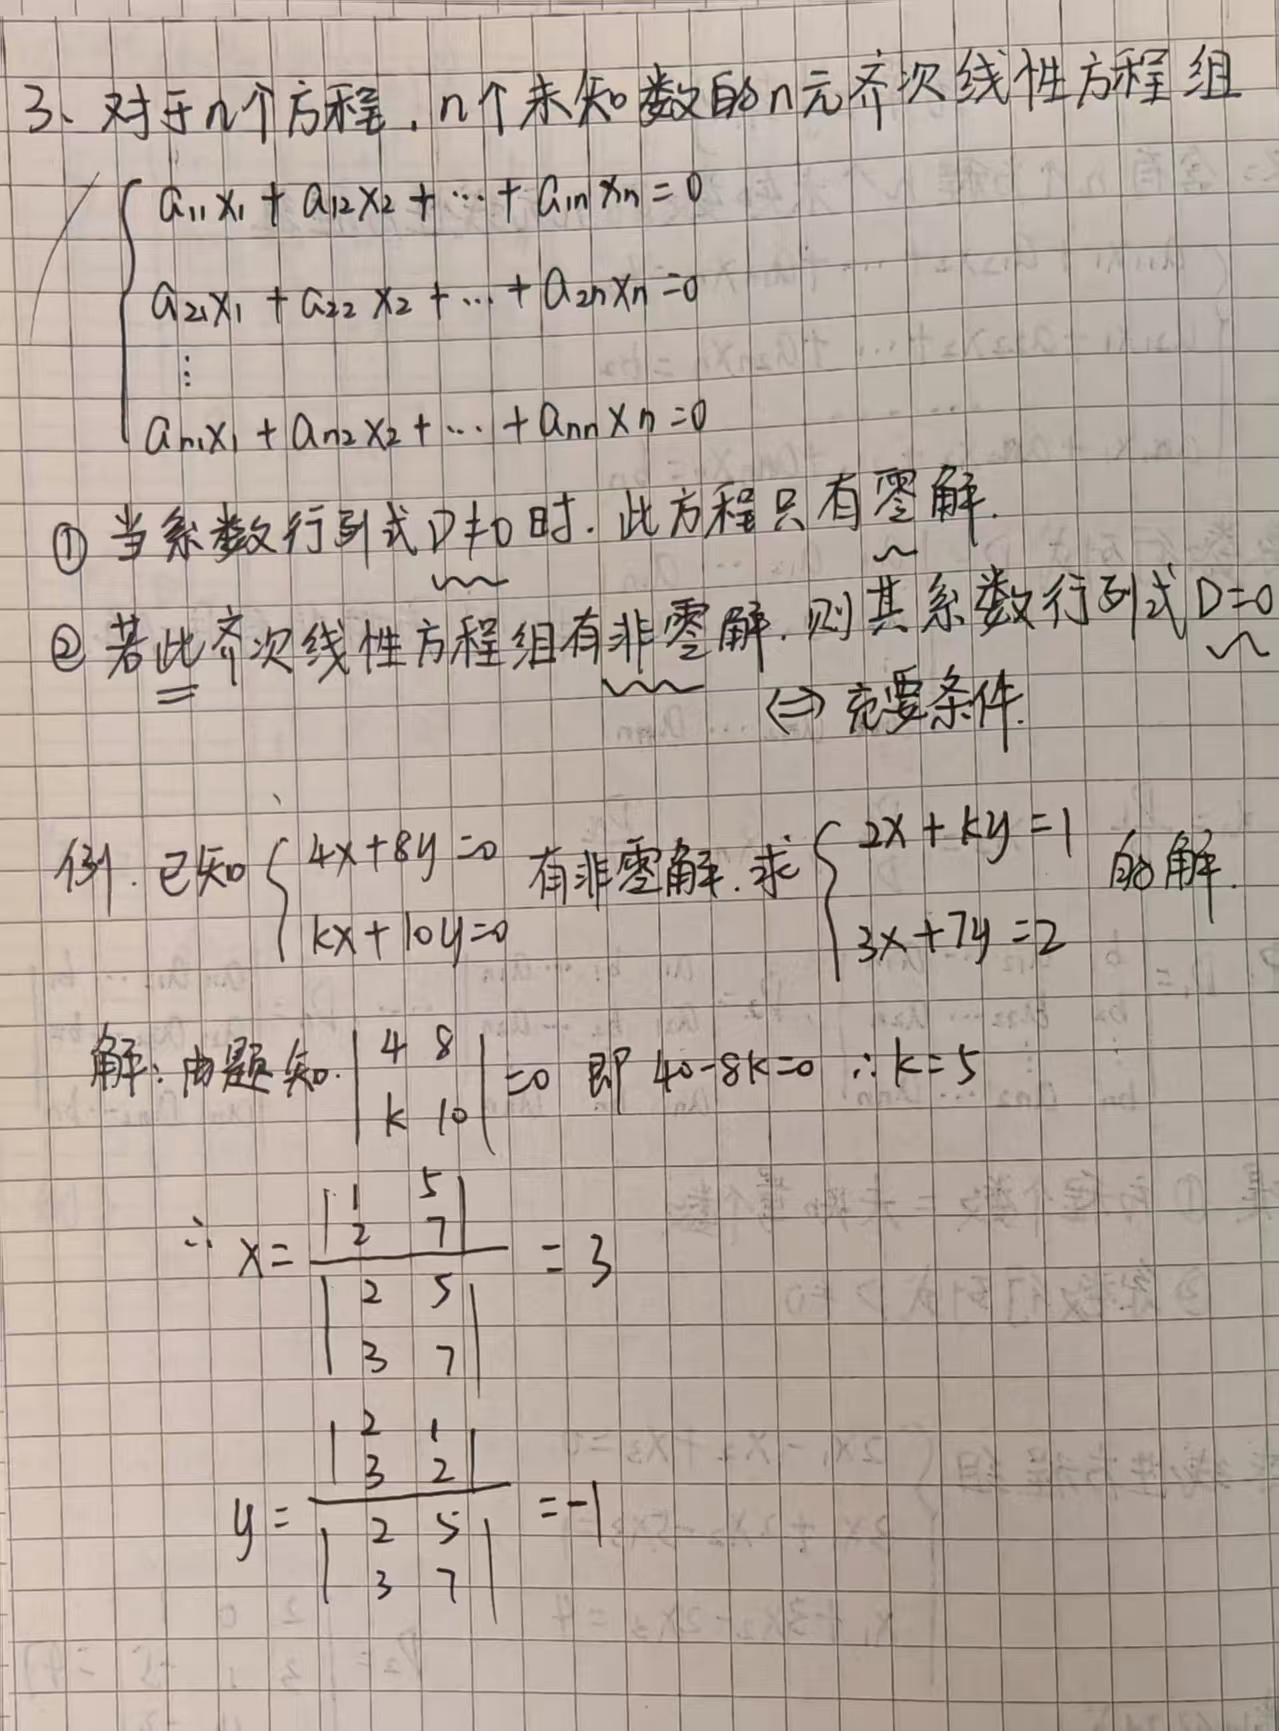 3、对于n个方程，n个未知数的n元齐次线性方程组
a₁₁x₁ + a₁₂x₂ + ⋯ + a₁ₙxₙ = 0
a₂₁x₁ + a₂₂x₂ + ⋯ + a₂ₙxₙ = 0
⋮
aₙ₁x₁ + aₙ₂x₂ + ⋯ + aₙₙxₙ = 0
① 当系数行列式D≠0时．此方程只有零解．
② 若此齐次线性方程组有非零解．则其系数行列式D=0
⇔ 充要条件．
例．已知 { 4x+8y=0 kx+10y=0 有非零解．求 { 2x+ky=1 3x+7y=2 的解．
解：由题知． | 4 8 | =0 即 40-8k=0 ∴k=5
| k 10 |
| 1 5 |
| 2 7 |
∴ x = ─── = 3
| 2 5 |
| 3 7 |
| 2 1 |
| 3 2 |
y = ─── = -1
| 2 5 |
| 3 7 |